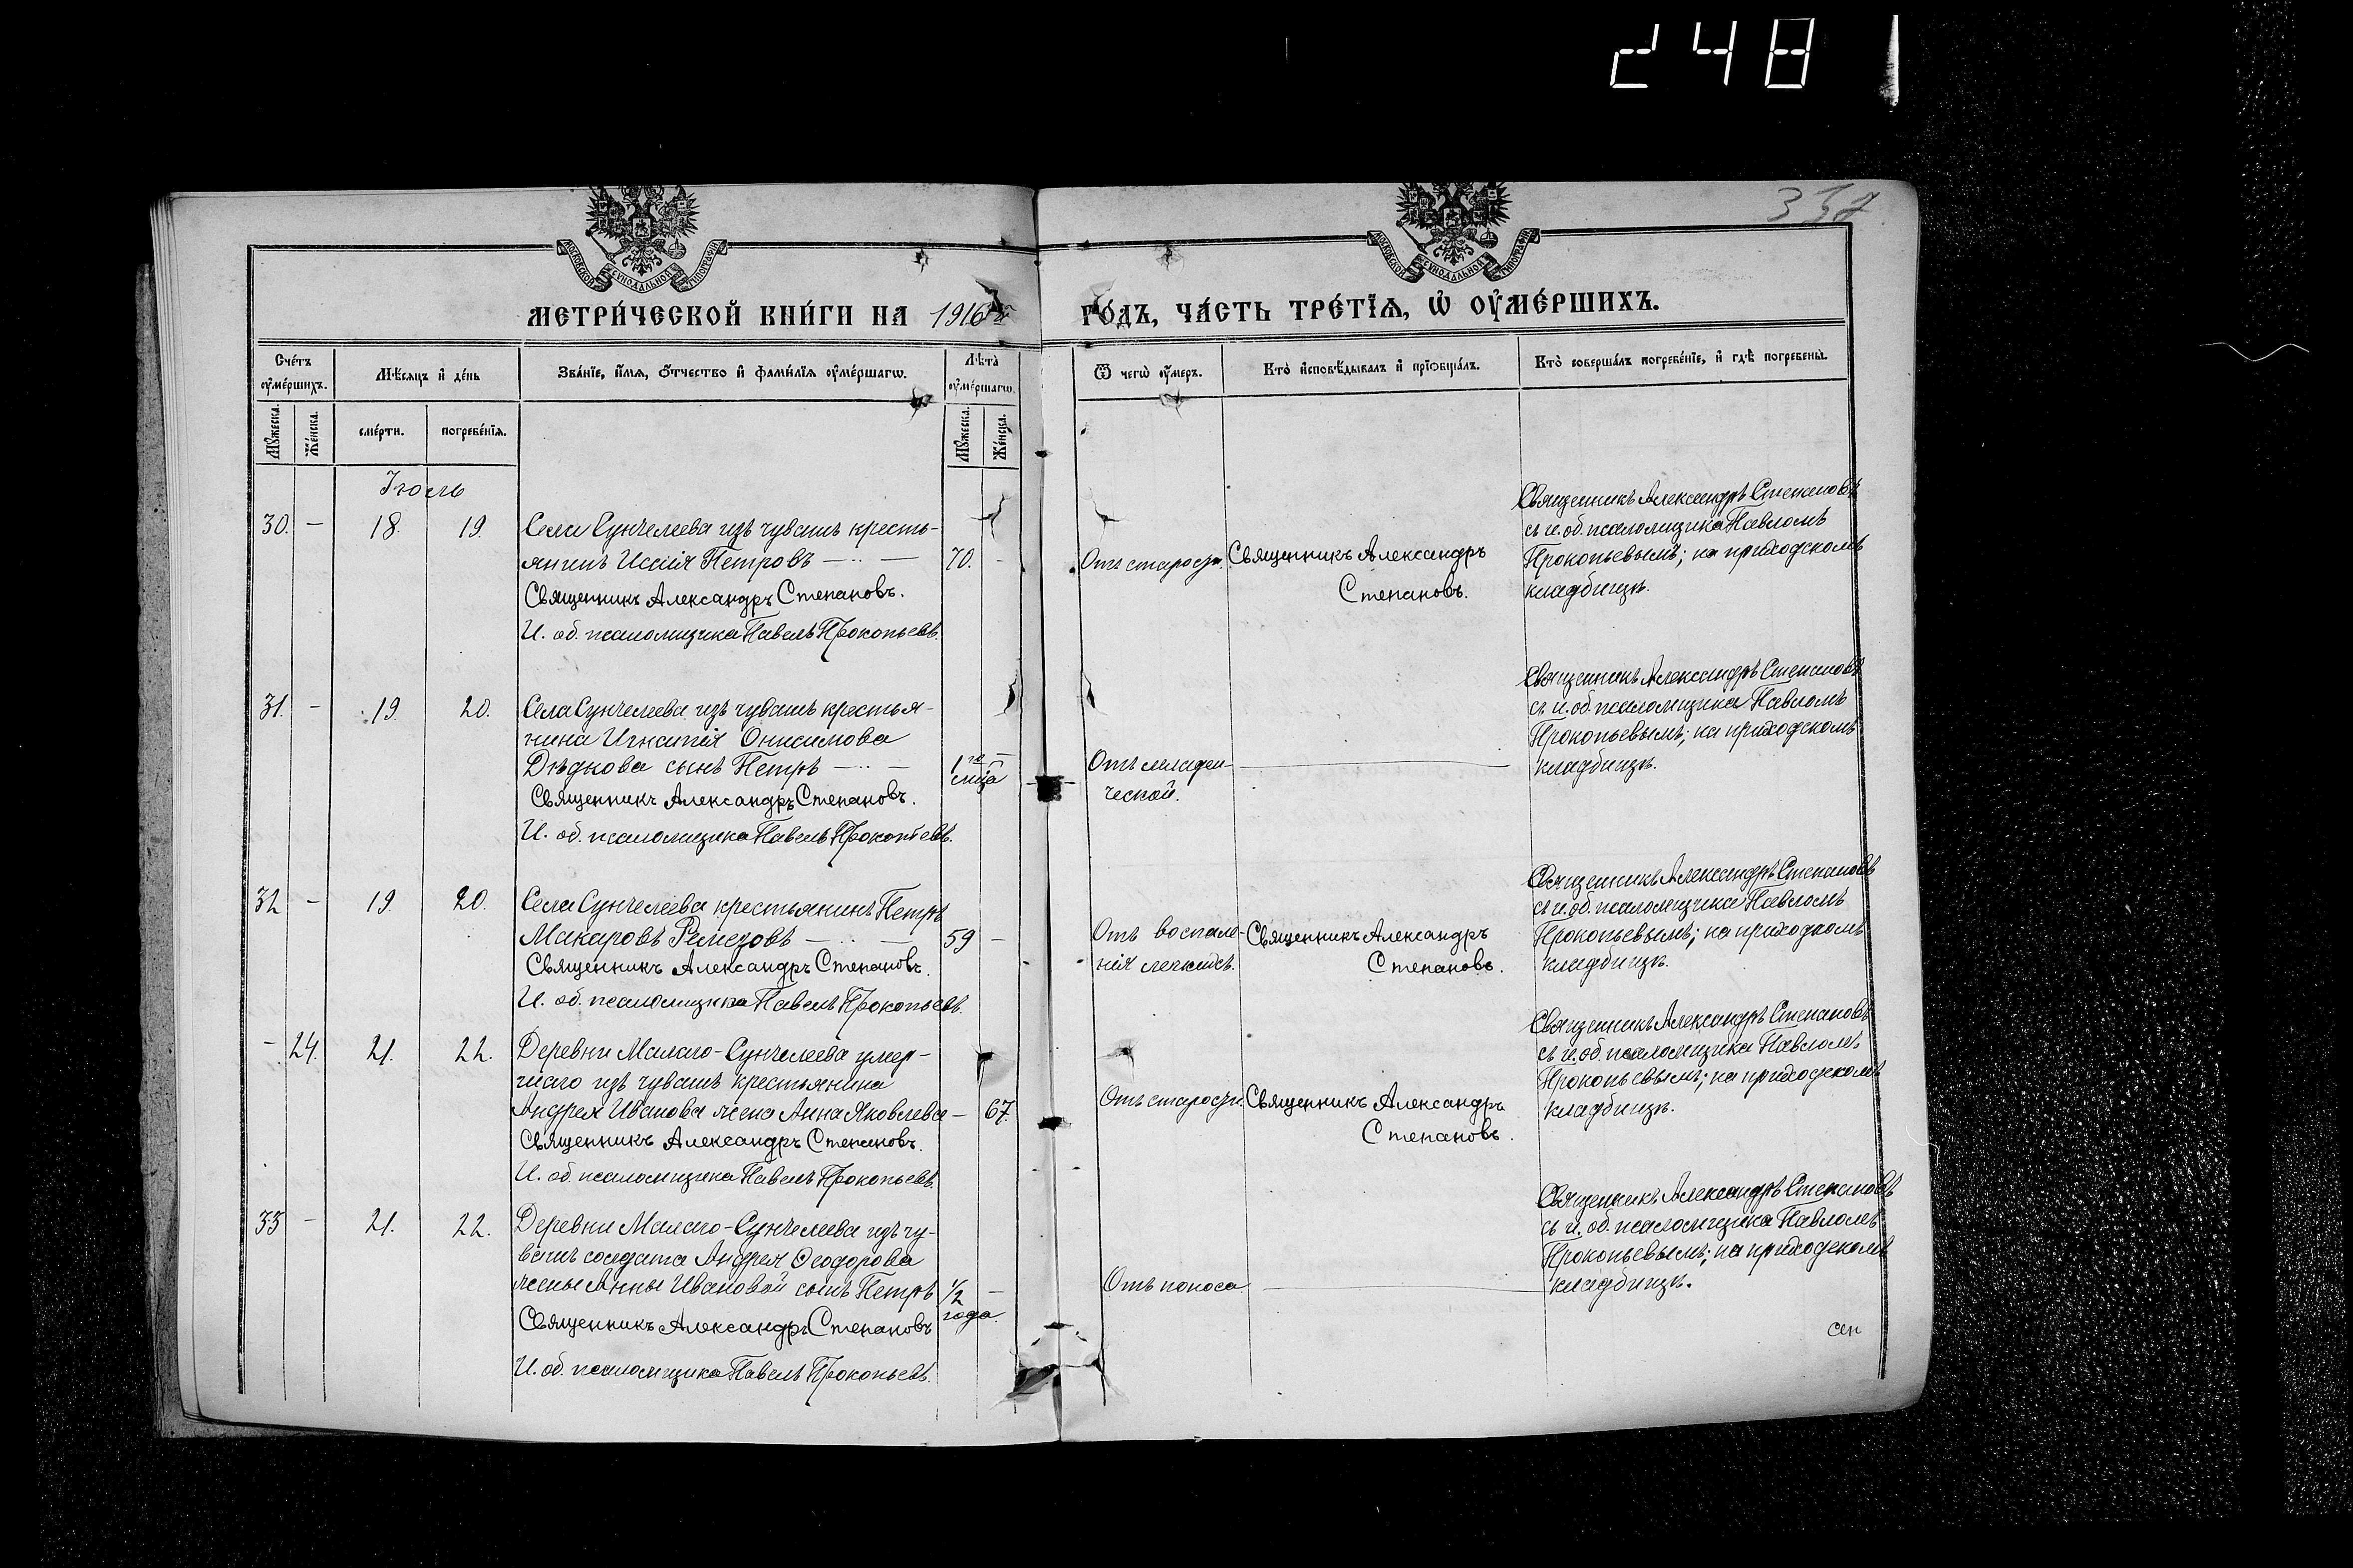 2481
337
МОСКОВСКОЙ СѴНОДАЛЬНОЙ ТИПОГРАФІИ
МОСКОВСКОЙ СѴНОДАЛЬНОЙ ТИПОГРАФІИ
МЕТРИ́ЧЕСКОЙ КНИ́ГИ НА 1916й
ГО́ДЪ, ЧА́СТЬ ТРЕ́ТІѦ, Ѡ҆ ОУ҆МЕ́РШИХЪ.
Сче́тъ оу҆ме́ршихъ.
Мѣ́сяцъ и҆ де́нь
Зва́нїе, и҆́мѧ, ѻ҆́тчество и҆ фами́лїѧ оу҆ме́ршагѡ.
Лѣ́та оу҆ме́ршагѡ.
Ѿ чегѡ̀ оу҆́меръ.
Кто̀ и҆сповѣ́дывалъ и҆ прїѡбща́лъ.
Кто̀ соверша́лъ погребе́нїе, и҆ гдѣ̀ погребены̀.
Мꙋ́жеска.
Же́нска.
сме́рти.
погребе́нїѧ.
Мꙋ́жеска.
Же́нска.
Іюль
30. — 18. 19.
Села Сунчелеева изъ чувашъ кресть-
янинъ Исаія Петровъ — .. — 70. -
Священникъ Александръ Степановъ.
И. об. псаломщика Павелъ Прокопьевъ.
Отъ старости.
Священникъ Александръ
Степановъ.
Священникъ Александръ Степановъ
съ и. об. псаломщика Павломъ
Прокопьевымъ; на приходскомъ
кладбищѣ.
31. - 19. 20.
Села Сунчелеева изъ чувашъ крестья-
нина Игнатія Онисимова
Дѣдкова сынъ Петръ — .. — 1го м҃ца —
Священникъ Александръ Степановъ.
И. об. псаломщика Павелъ Прокопьевъ.
Отъ младен-
ческой.
Священникъ Александръ Степановъ
съ и. об. псаломщика Павломъ
Прокопьевымъ; на приходскомъ
кладбищѣ.
32 - 19. 20.
Села Сунчелеева крестьянинъ Петръ
Макаровъ Ремезовъ — .. — 59 —
Священникъ Александръ Степановъ.
И. об. псаломщика Павелъ Прокопьевъ.
Отъ воспале-
нія легкихъ.
Священникъ Александръ
Степановъ.
Священникъ Александръ Степановъ
съ и. об. псаломщика Павломъ
Прокопьевымъ; на приходскомъ
кладбищѣ.
- 24. 21. 22.
Деревни Малаго-Сунчелеева умер-
шаго изъ чувашъ крестьянина
Андрея Иванова жена Анна Яковлева — 67.
Священникъ Александръ Степановъ.
И. об. псаломщика Павелъ Прокопьевъ.
Отъ старости.
Священникъ Александръ
Степановъ.
Священникъ Александръ Степановъ
съ и. об. псаломщика Павломъ
Прокопьевымъ; на приходскомъ
кладбищѣ.
33 - 21. 22.
Деревни Малаго-Сунчелеева изъ чу-
вашъ солдата Андрея Ѳеодорова
жены Анны Ивановой сынъ Петръ 1/2 года. —
Священникъ Александръ Степановъ
И. об. псаломщика Павелъ Прокопьевъ.
Отъ поноса
Священникъ Александръ Степановъ
съ и. об. псаломщика Павломъ
Прокопьевымъ; на приходскомъ
кладбищѣ.